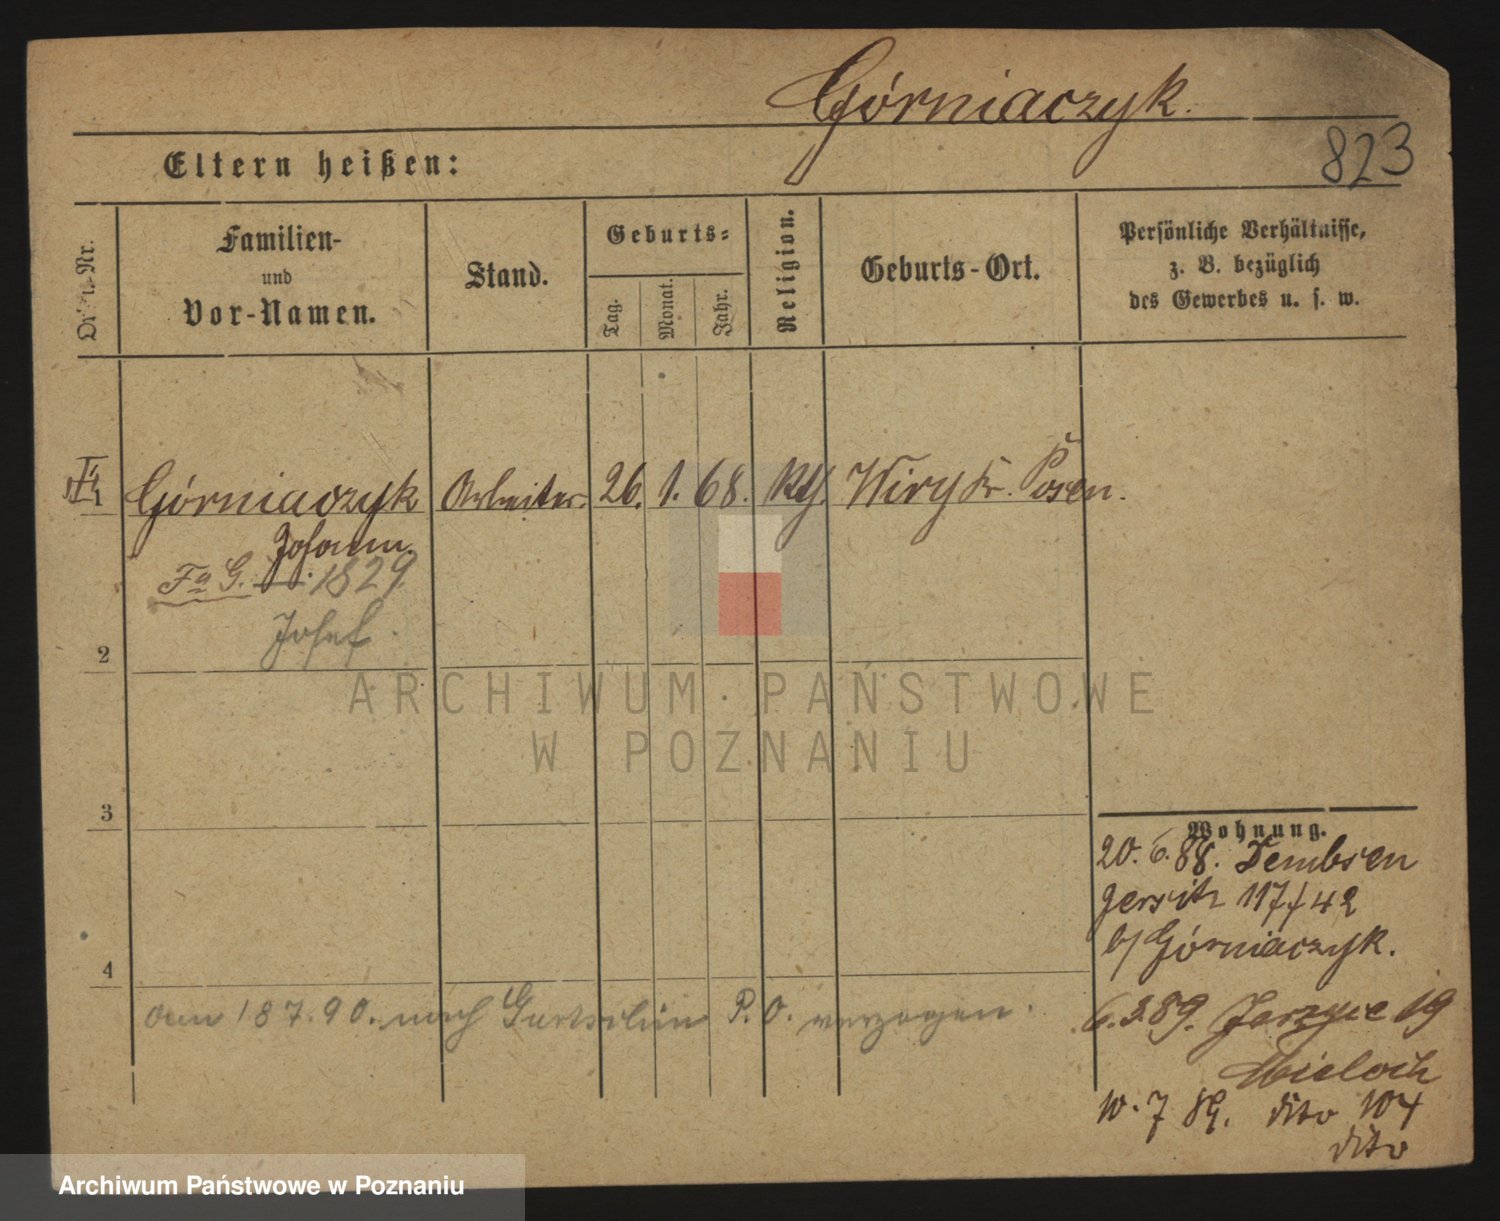 Górniaczyk.
823
Eltern heißen:
Familien-
und
Vor-Namen.
Stand.
Geburts-
Tag.
Monat.
Jahr.
Religion.
Geburts-Ort.
Persönliche Verhältnisse,
z. B. bezüglich
des Gewerbes u. s. w.
1 Górniaczyk Arbeiter. 26. 1. 68. Kth. Wiry Kr. Posen.
Johann.
Fa G. 1829
Josef.
2
ARCHIWUM PAŃSTWOWE
W POZNANIU
3
Wohnung.
20. 6. 88. Dembsen
Jersitz 117/42
b/ Górniaczyk.
4
am 18 7. 90. nach Gurtschin P. O. verzogen.
6. 3. 89. Jerzyce 19
Mieloch
10. 7 89. dito 104
dito
Archiwum Państwowe w Poznaniu